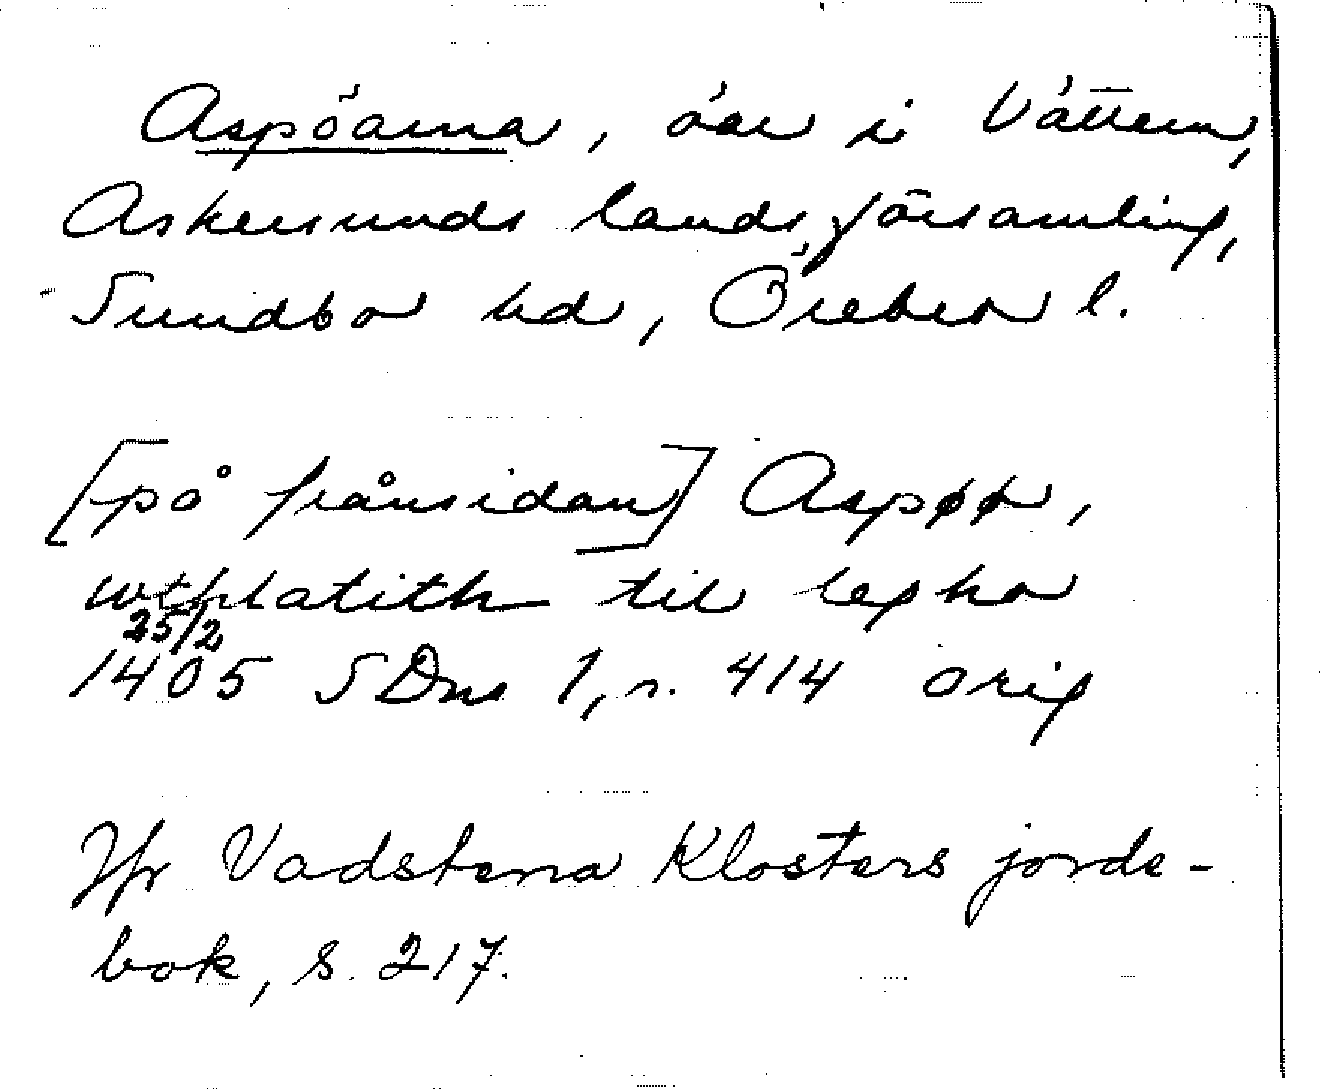 Aspöarna, öar i Vättern,
Askersunds landsförsamling,
Sundbo hd, Örebro l.
[på frånsidan] Aspøø,
wthlatith til leǥho
25/2
1405 SDns 1, s. 414 orig
Jfr Vadstena Klosters jorde-
bok, s. 217.